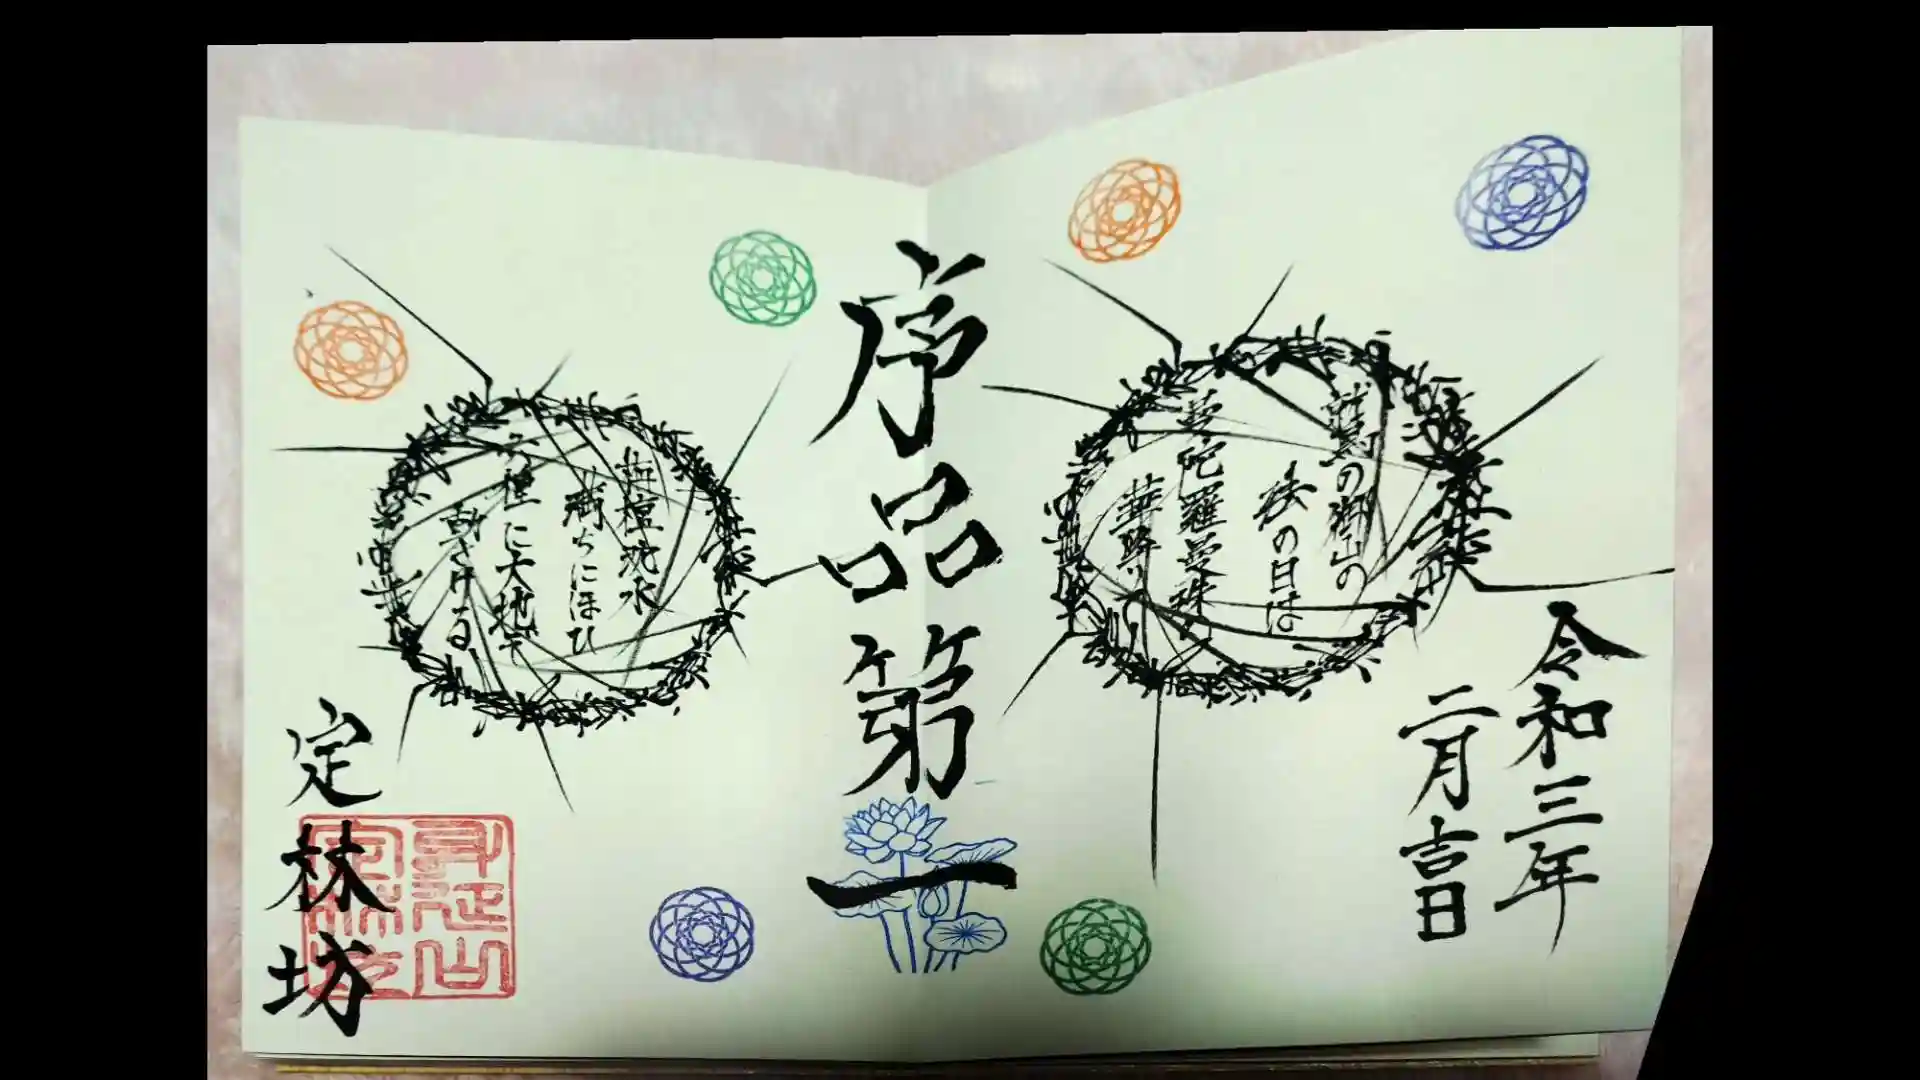 令和三年
二月吉日
鷲の御山の
の日は
曼陀羅曼珠の
華降り
序品第一
栴檀沈水
満ちにほひ
六種に大地ぞ
動きける
定林坊
身延山
定林坊